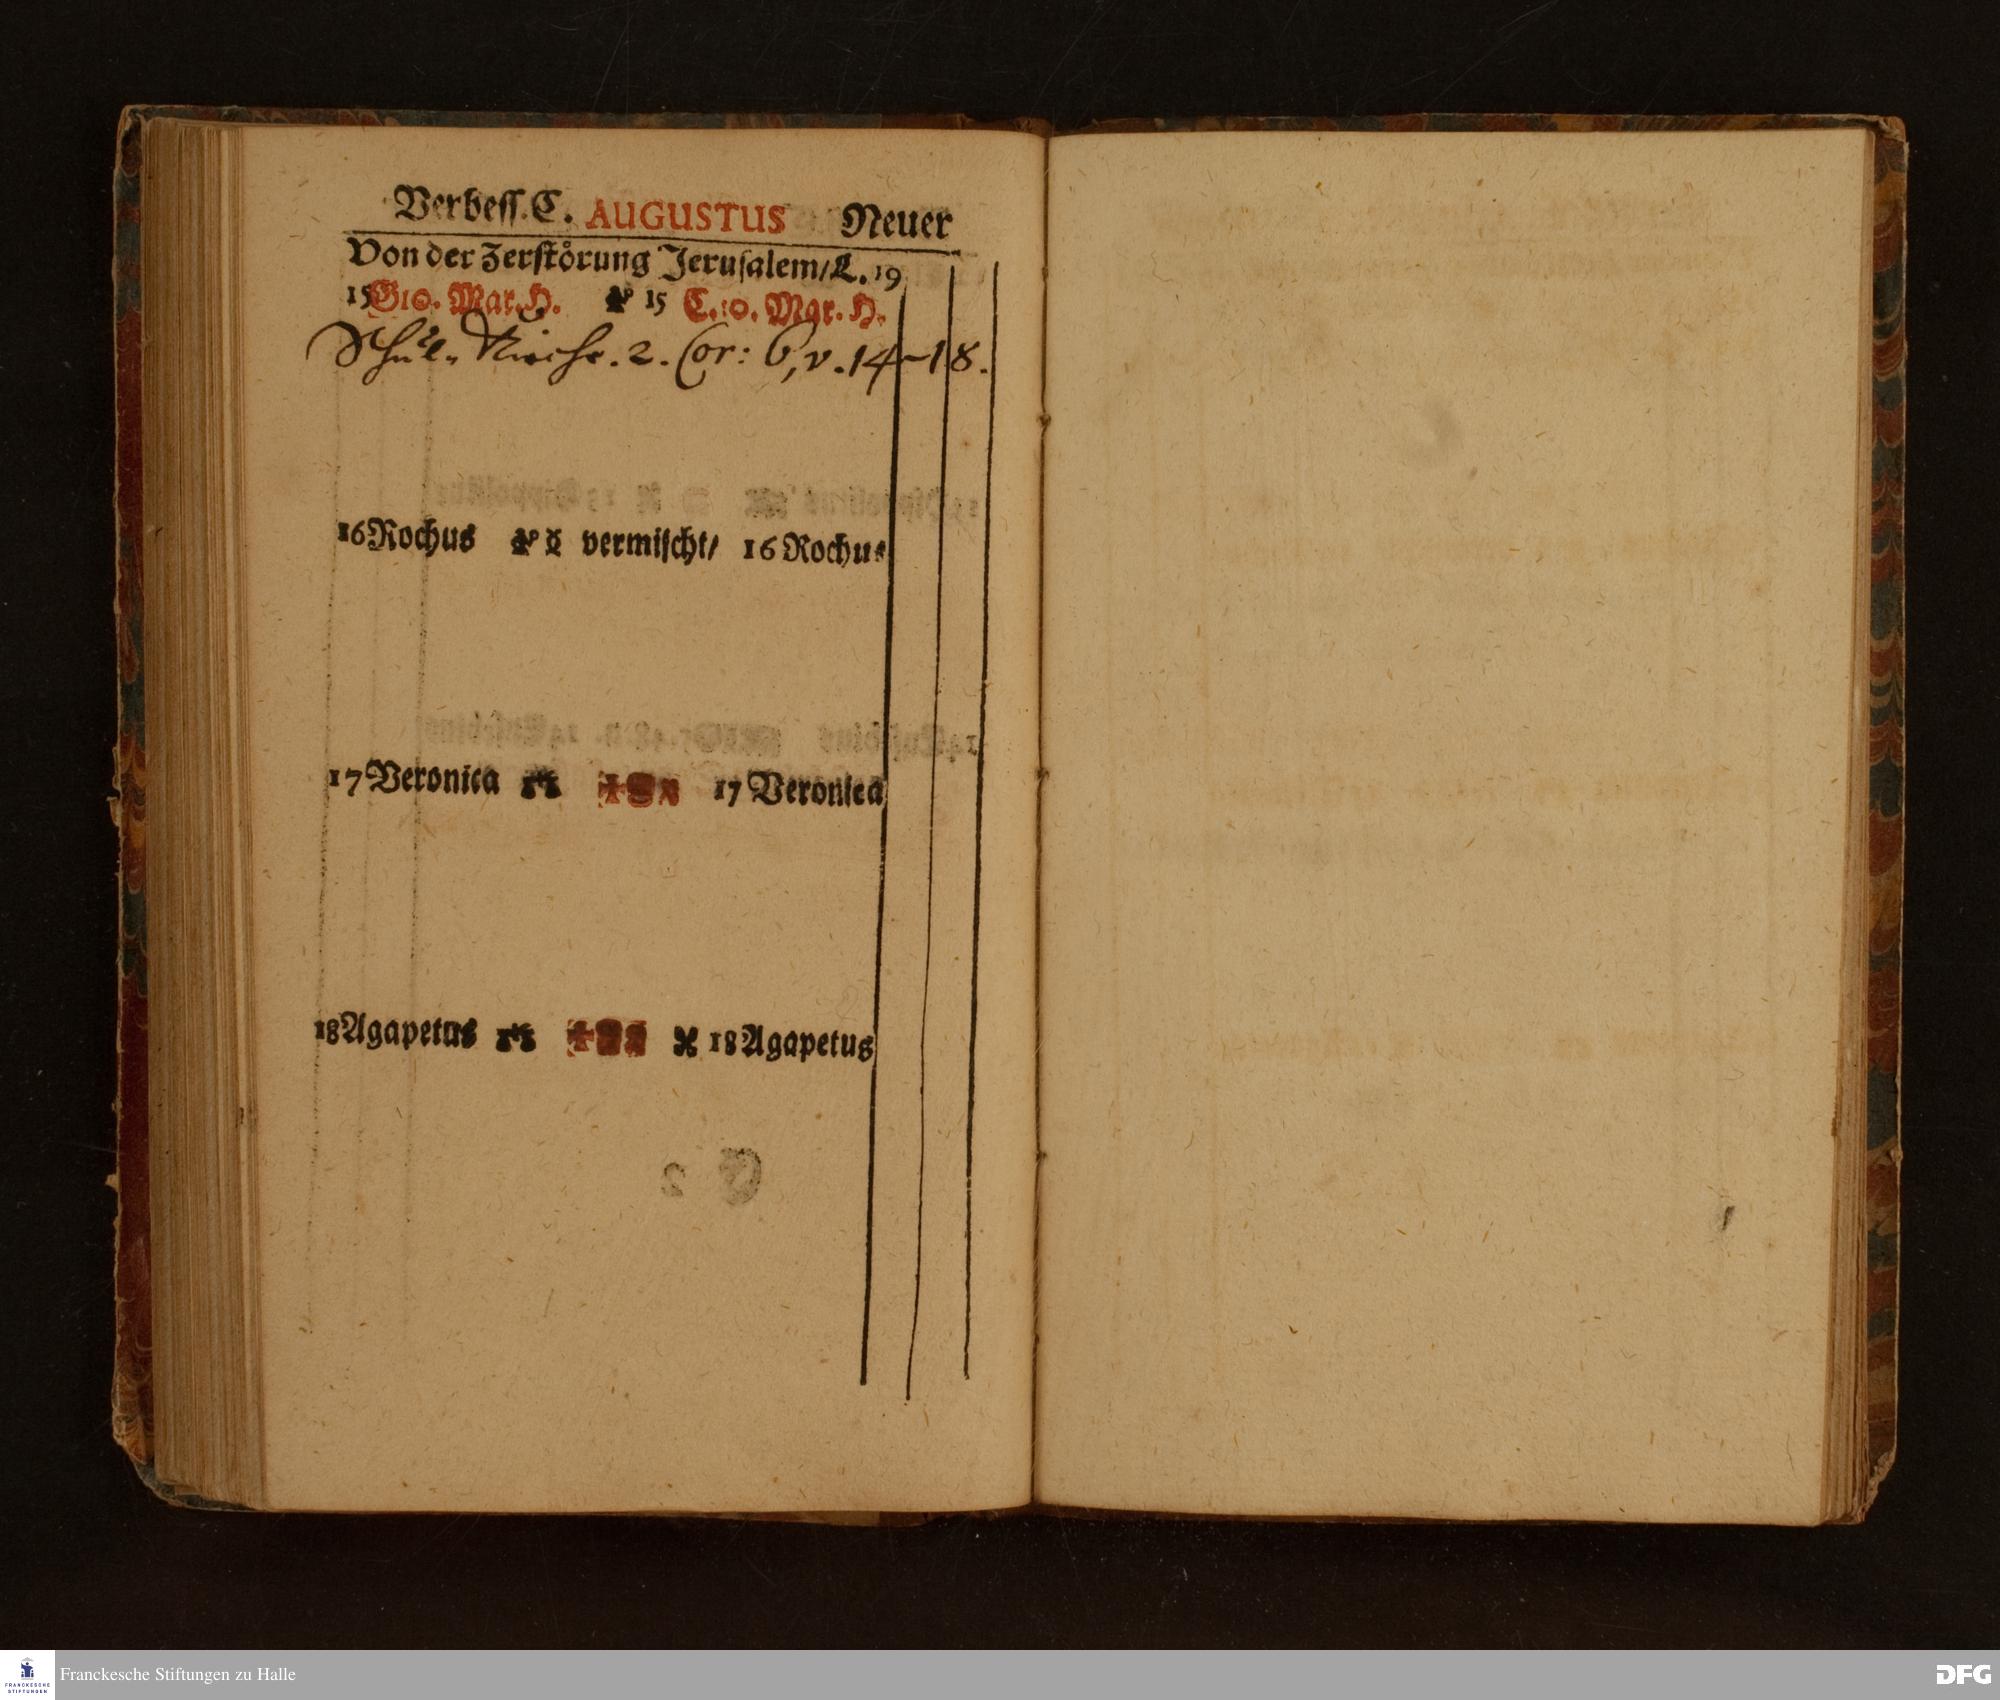 Verbeſſ. C. AUGUSTUS Neuer
Von der Zerſtörung Jeruſalem/ L. 19
15 G10. Mar. H. 15 C.10. Mar. H.
Schul-Kirche. 2. Cor: 6, v. 14-18.
16 Rochus vermiſcht/ 16 Rochus
17 Veronica 17 Veronica
18 Agapetus 18 Agapetus
FRANCKESCHE STIFTUNGEN
Franckesche Stiftungen zu Halle
DFG